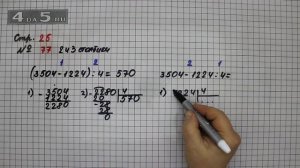 4DA5.RU
Стр. 25
№ 77 243 столбик
1 2 2 1
(3504-1224):4=570 3504-1224:4=
1) - 3504 2) - 2280 | 4 1) 1224 | 4
1224 20 570
2280 28
28
0